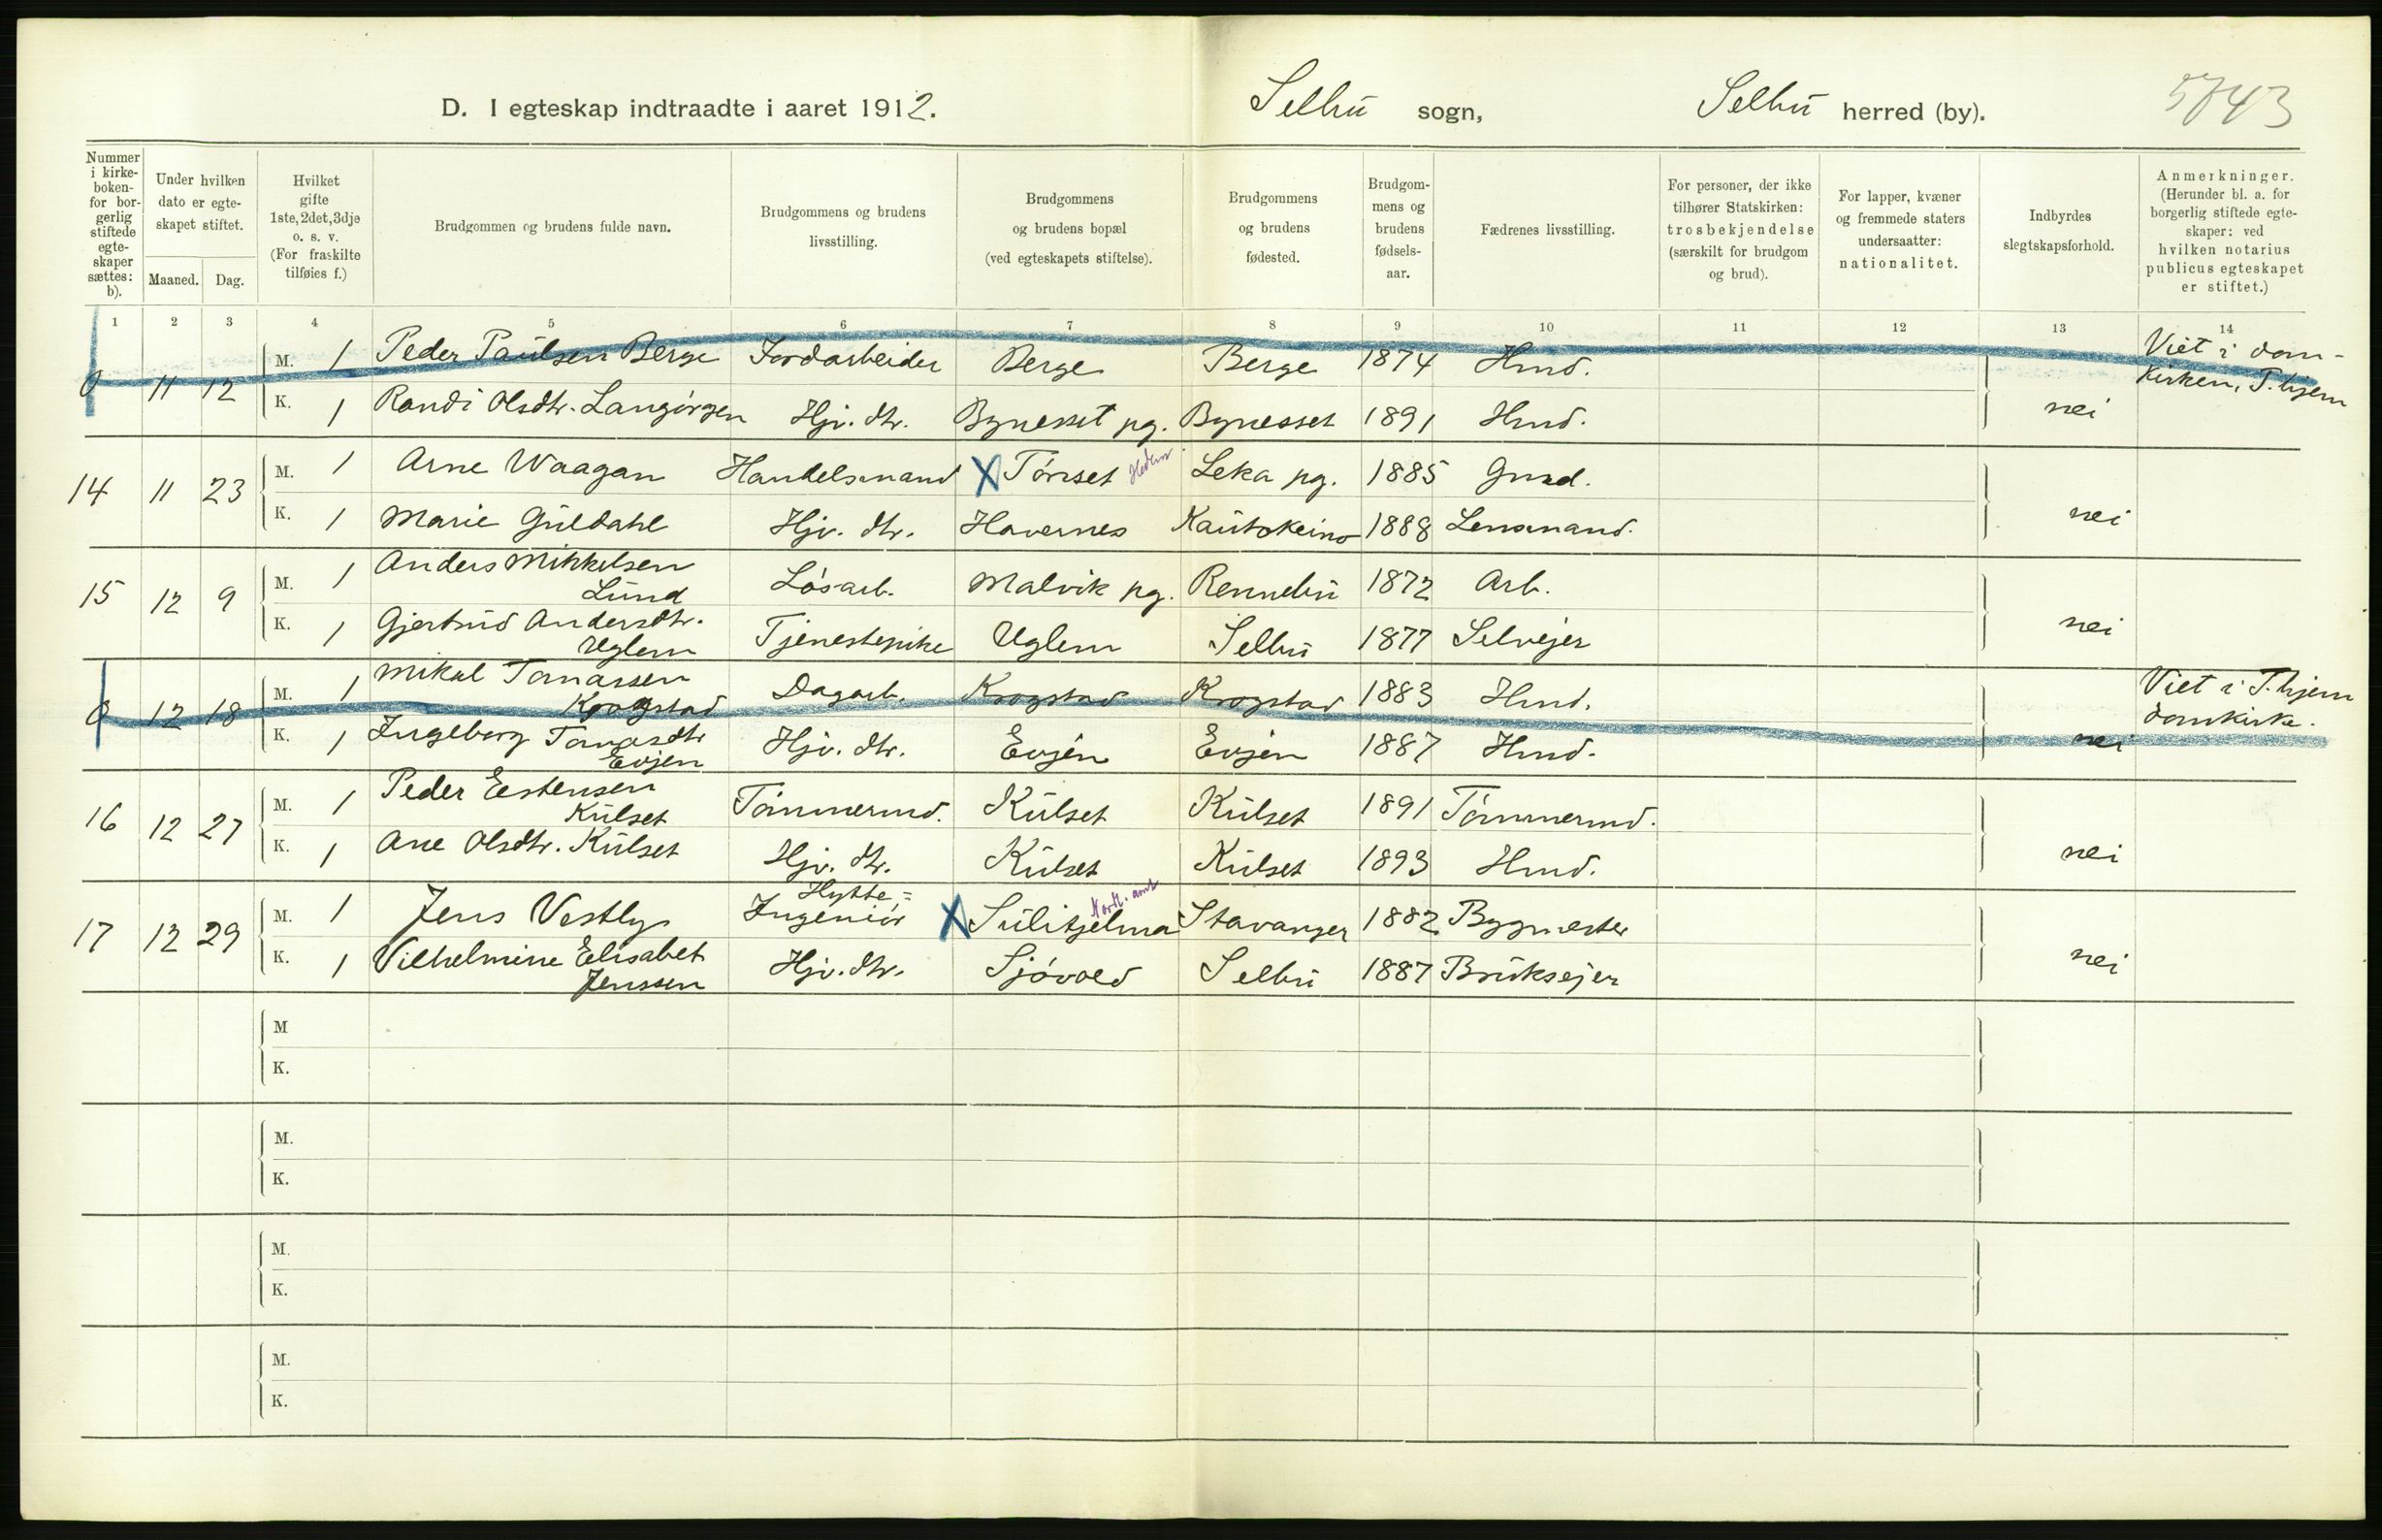 D. I egteskap indtraadte i aaret 1912.
Selbu sogn,
Selbu herred (by).
Nummer i kirke-boken- for bor-gerlig stiftede egte-skaper sættes: b).
Under hvilken dato er egte-skapet stiftet.
Maaned. Dag.
Hvilket gifte 1ste, 2det, 3dje o. s. v. (For fraskilte tilføies f.)
Brudgommen og brudens fulde navn.
Brudgommens og brudens livsstilling.
Brudgommens og brudens bopæl (ved egteskapets stiftelse).
Brudgommens og brudens fødested.
Brudgom-mens og brudens fødsels-aar.
Fædrenes livsstilling.
For personer, der ikke tilhører Statskirken: trosbekjendelse (særskilt for brudgom og brud).
For lapper, kvæner og fremmede staters undersaatter: nationalitet.
Indbyrdes slegtskapsforhold.
Anmerkninger. (Herunder bl. a. for borgerlig stiftede egte-skaper: ved hvilken notarius publicus egteskapet er stiftet.)
1 2 3 4 5 6 7 8 9 10 11 12 13 14
0 11 12 M. 1 Peder Paulsen Berge Jordarbeider Berge Berge 1874 Hmd. Viet i dom-
kirken, T.hjem
K. 1 Randi Olsdtr. Langørgen Hjv. dtr. Bynesset pg. Bynesset 1891 Hmd. nei
14 11 23 M. 1 Arne Waagan Handelsmand X Tønset Hedm. Leka pg. 1885 Gmd.
K. 1 Marie Guldahl Hjv. dtr. Havernes Kautokeino 1888 Lensmand. nei
15 12 9 M. 1 Anders Mikkelsen
Lund Løsarb. Malvik pg. Rennebu 1872 Arb.
K. 1 Gjertrud Andersdtr.
Uglem Tjenestepike Uglem Selbu 1877 Selvejer nei
0 12 18 M. 1 Mikal Tomassen
Krogstad Dagarb. Krogstad Krogstad 1883 Hmd. Viet i T.hjem
domkirke.
K. 1 Ingeborg Tomasdtr
Evjen Hjv. dtr. Evjen Evjen 1887 Hmd. nei
16 12 27 M. 1 Peder Estensen
Kulset Tømmermd. Kulset Kulset 1891 Tømmermd.
K. 1 Ane Olsdtr. Kulset Hjv. dtr. Kulset Kulset 1893 Hmd. nei
17 12 29 M. 1 Jens Vestly Hytte-
Ingeniør X Sulitjelma Nordl. amt Stavanger 1882 Bygmester
K. 1 Vilhelmine Elisabet
Jenssen Hjv. dtr. Sjøvold Selbu 1887 Bruksejer nei
M
K.
M.
K.
M.
K.
M.
K.